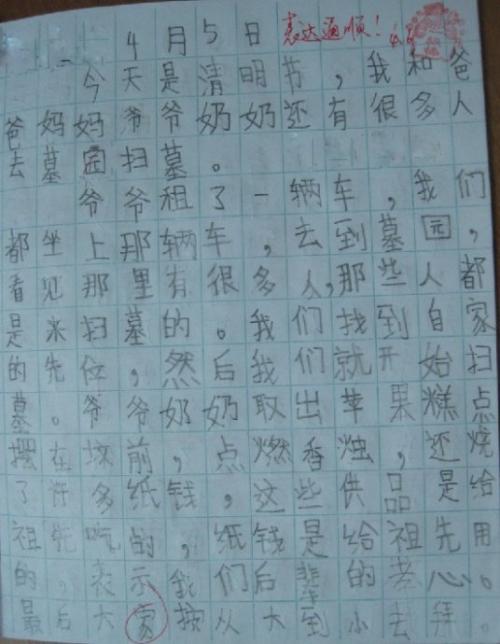 4月5日 表达通顺！
今天是清明节，我和爸
爸妈妈爷爷奶奶还有很多人
去墓园扫墓。
爷爷租了一辆车，我们
都坐上那辆车，去到墓园，
看见那里有很多人，那些人都
是来扫墓的。我们找到自家
的先位，然后我们就开始扫
墓。爷爷奶奶取出苹果糕点
摆在坟前，点燃香烛，还烧
了许多纸钱，这些供品是给
祖先吃的，纸钱是给祖先用
的，表示我们后辈的孝心。
最后大家按从大到小去拜。